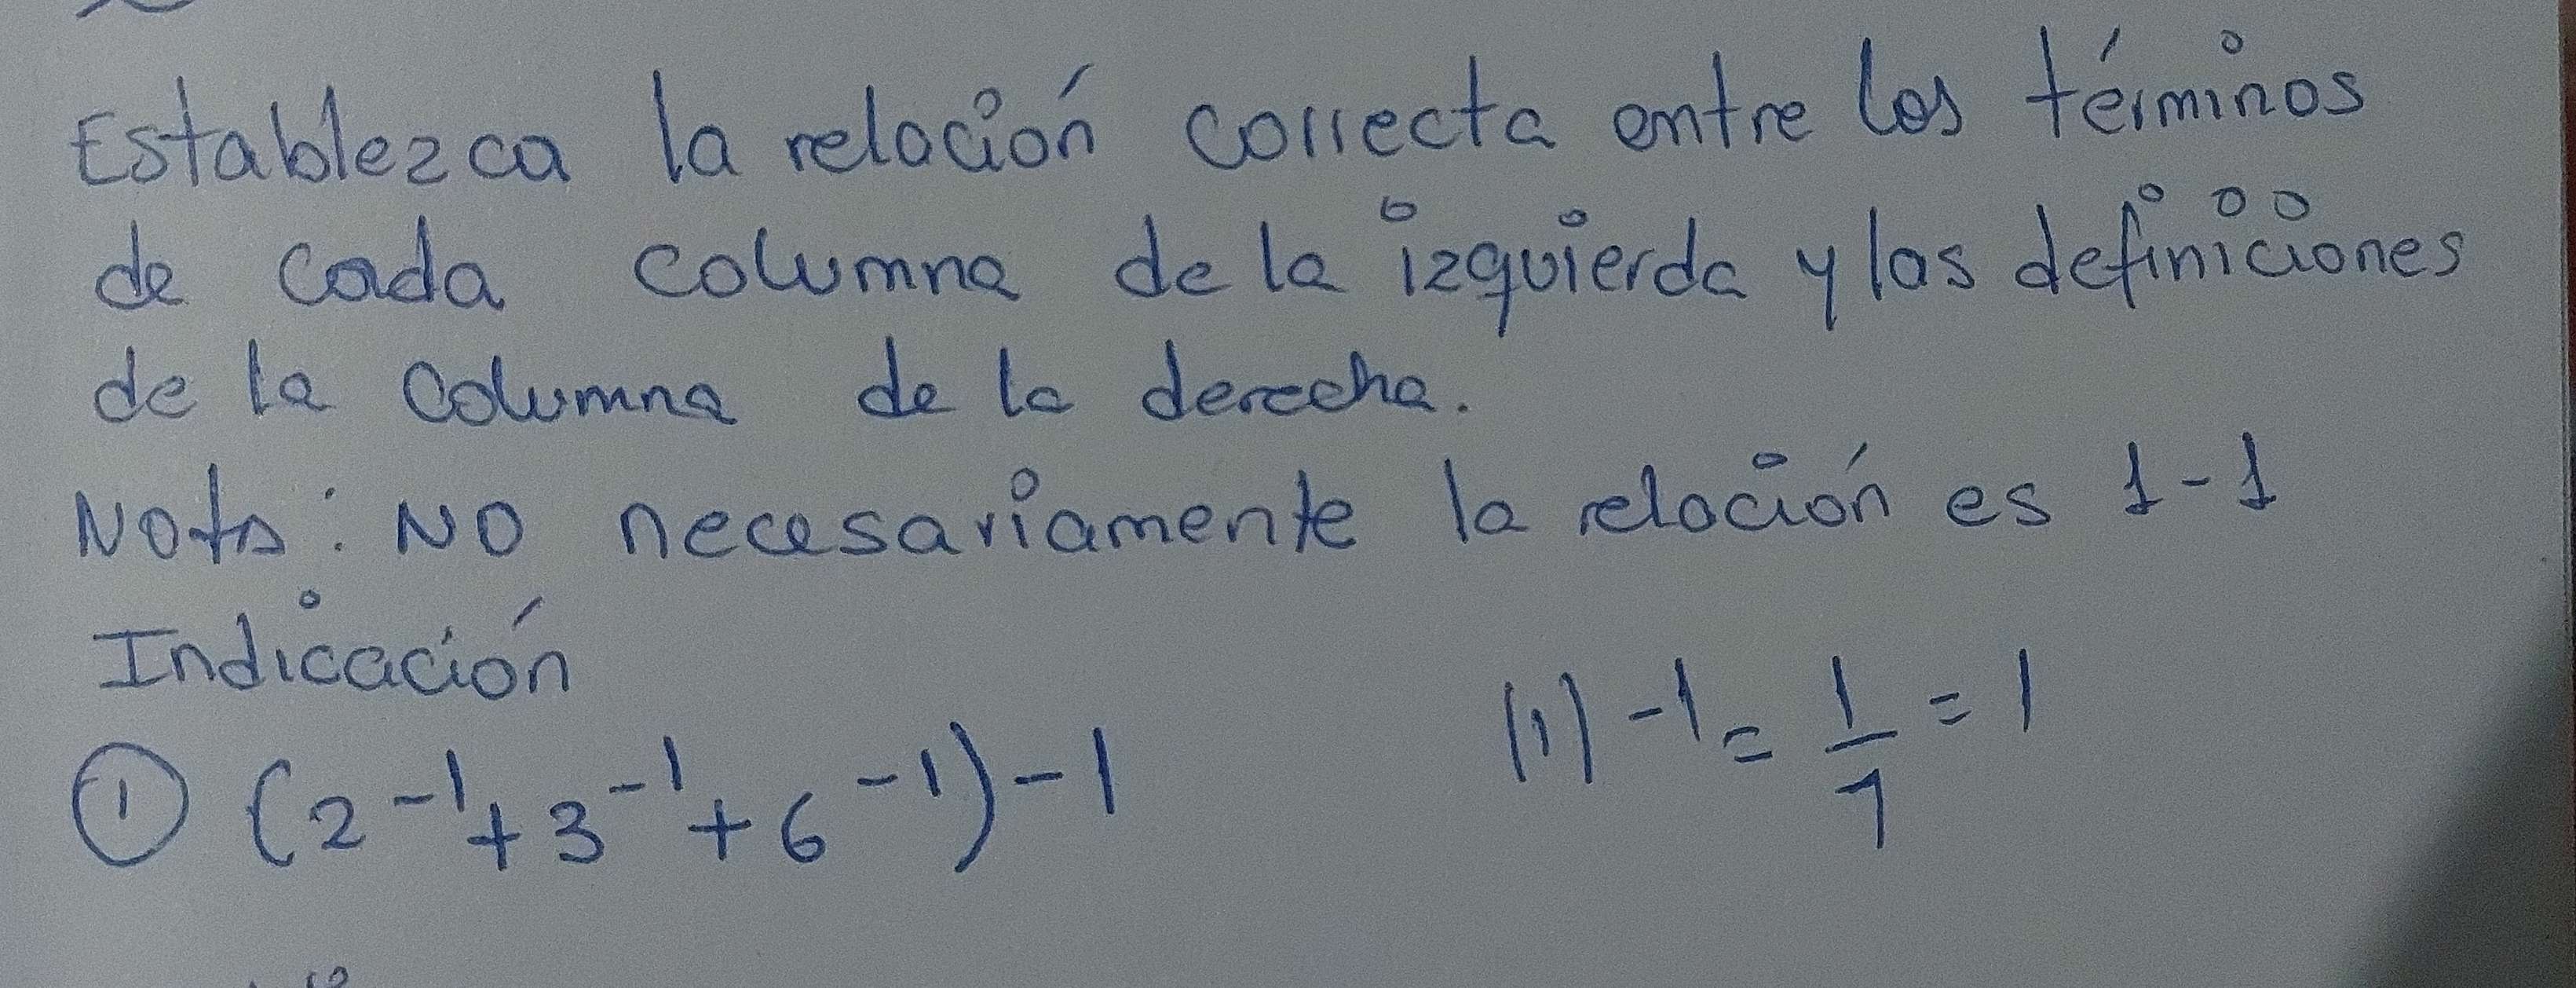 Establezca la relación correcta entre los términos
de cada columna de la izquierda y las definiciones
de la columna de la derecha.
Nota: NO necesariamente la relación es 1-1
Indicación
① (2⁻¹+3⁻¹+6⁻¹)-1 (1)-1 = 1/1 = 1